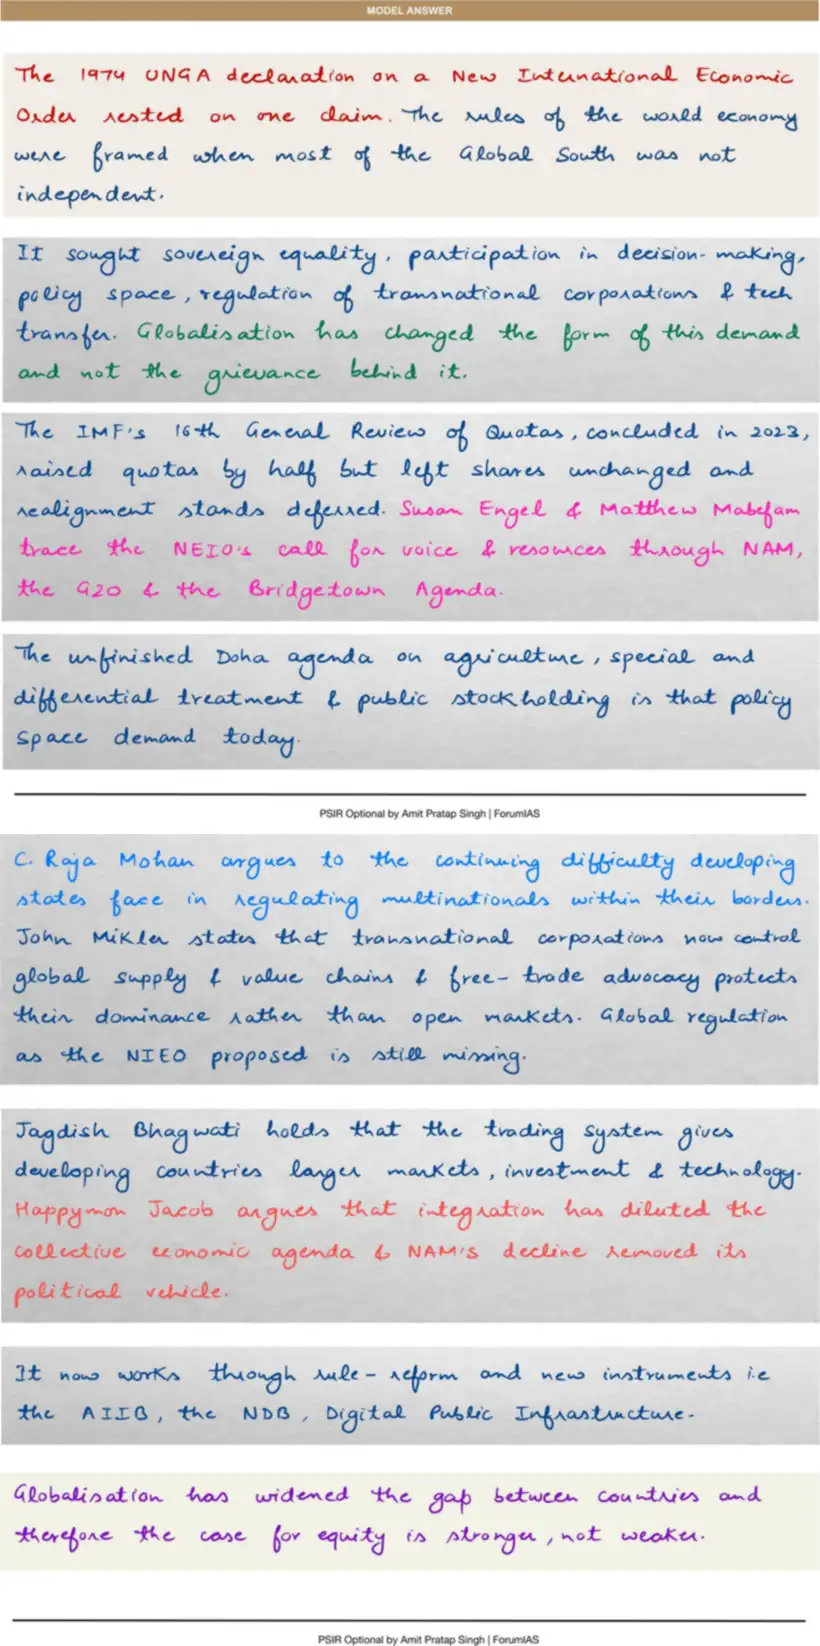 MODEL ANSWER
The 1974 UNGA declaration on a New International Economic
Order rested on one claim. The rules of the world economy
were framed when most of the Global South was not
independent.
It sought sovereign equality, participation in decision-making,
policy space, regulation of transnational corporations & tech
transfer. Globalisation has changed the form of this demand
and not the grievance behind it.
The IMF's 16th General Review of Quotas, concluded in 2023,
raised quotas by half but left shares unchanged and
realignment stands deferred. Susan Engel & Matthew Mabefam
trace the NEIO's call for voice & resources through NAM,
the G20 & the Bridgetown Agenda.
The unfinished Doha agenda on agriculture, special and
differential treatment & public stockholding is that policy
space demand today.
PSIR Optional by Amit Pratap Singh | ForumIAS
C. Raja Mohan argues to the continuing difficulty developing
states face in regulating multinationals within their borders.
John Mikler states that transnational corporations now control
global supply & value chains & free-trade advocacy protects
their dominance rather than open markets. Global regulation
as the NIEO proposed is still missing.
Jagdish Bhagwati holds that the trading system gives
developing countries larger markets, investment & technology.
Happymon Jacob argues that integration has diluted the
collective economic agenda & NAM's decline removed its
political vehicle.
It now works through rule-reform and new instruments i.e
the AIIB, the NDB, Digital Public Infrastructure.
Globalisation has widened the gap between countries and
therefore the case for equity is stronger, not weaker.
PSIR Optional by Amit Pratap Singh | ForumIAS